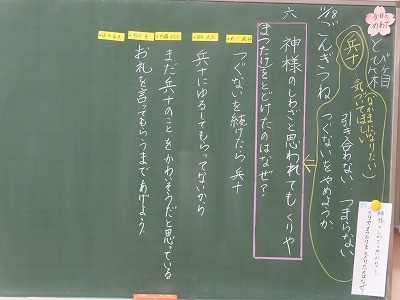 今日のめあて
とび箱
11/8 ごんぎつね
兵十
(なかまになりたい)
気づいてほしい
引き合わない、つまらない
つぐないをやめようか
六 神様のしわざと思われても くりや
まつたけをとどけたのはなぜ?
つぐないを続けたら兵十
兵十にゆるしてもらってないから
まだ兵十のことをかわいそうだと思っている
お礼を言ってもらうまであげよう。